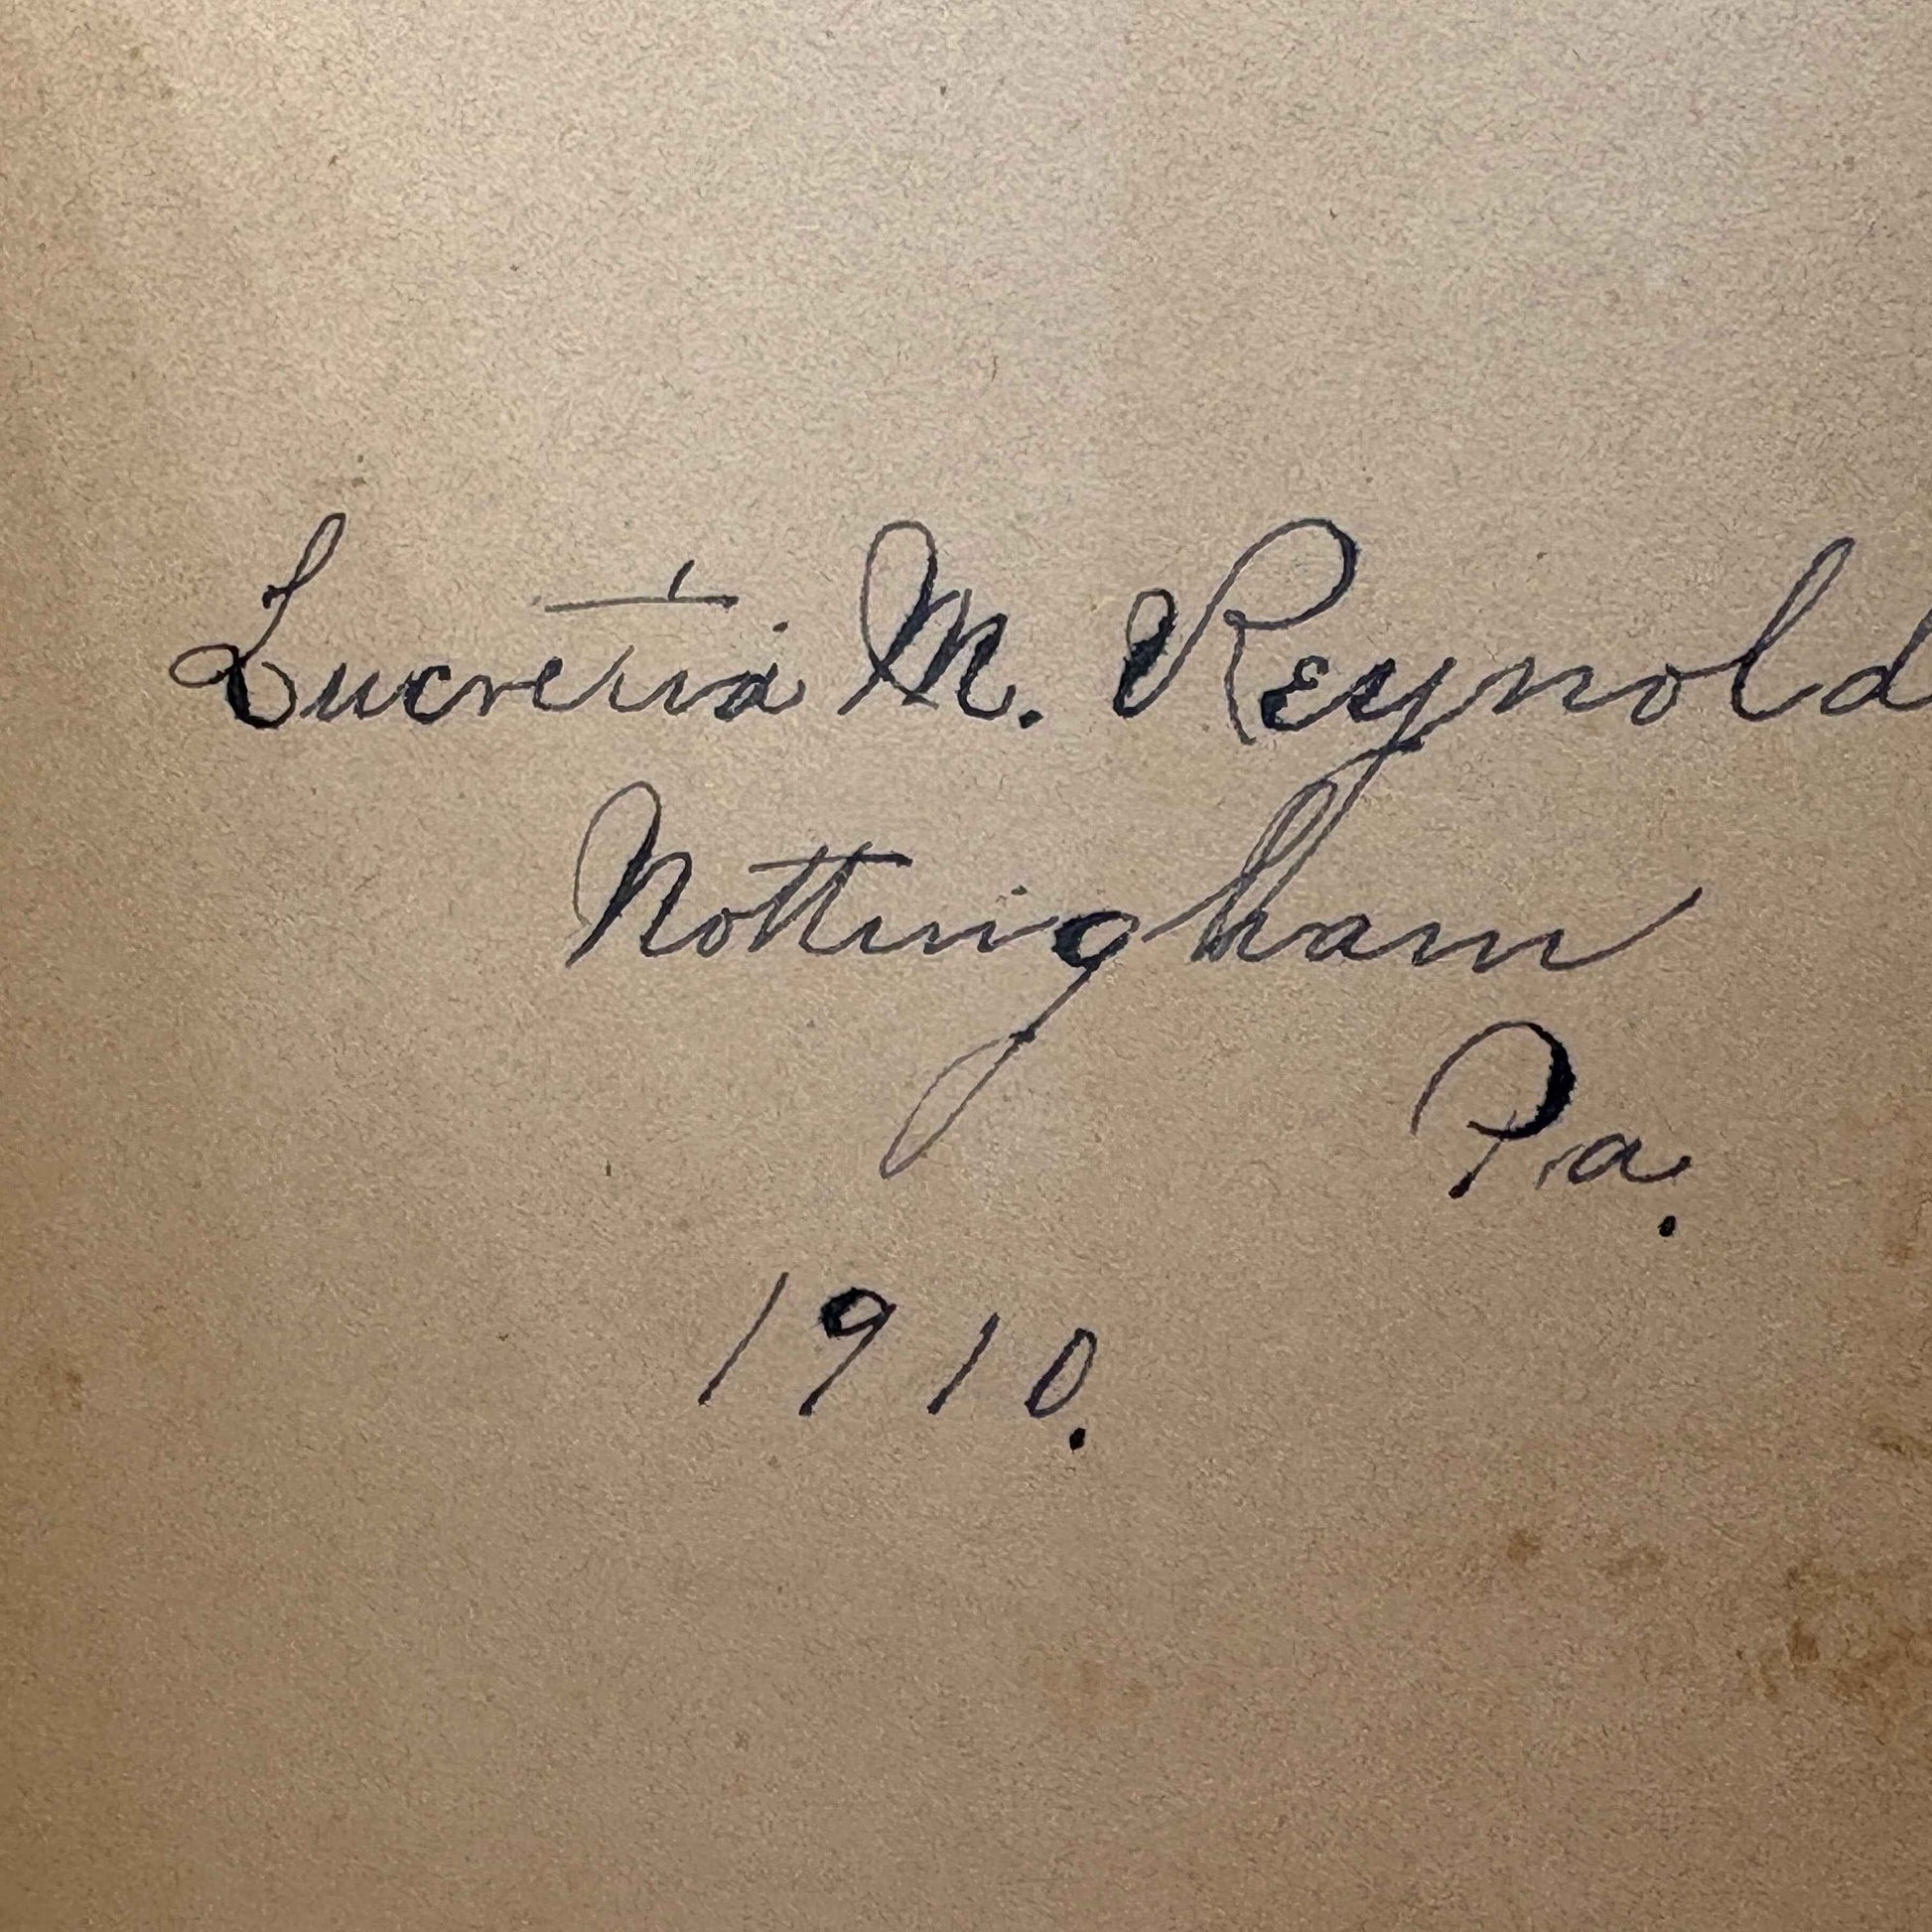 Lucretia M. Reynold
Nottingham
Pa.
1910.